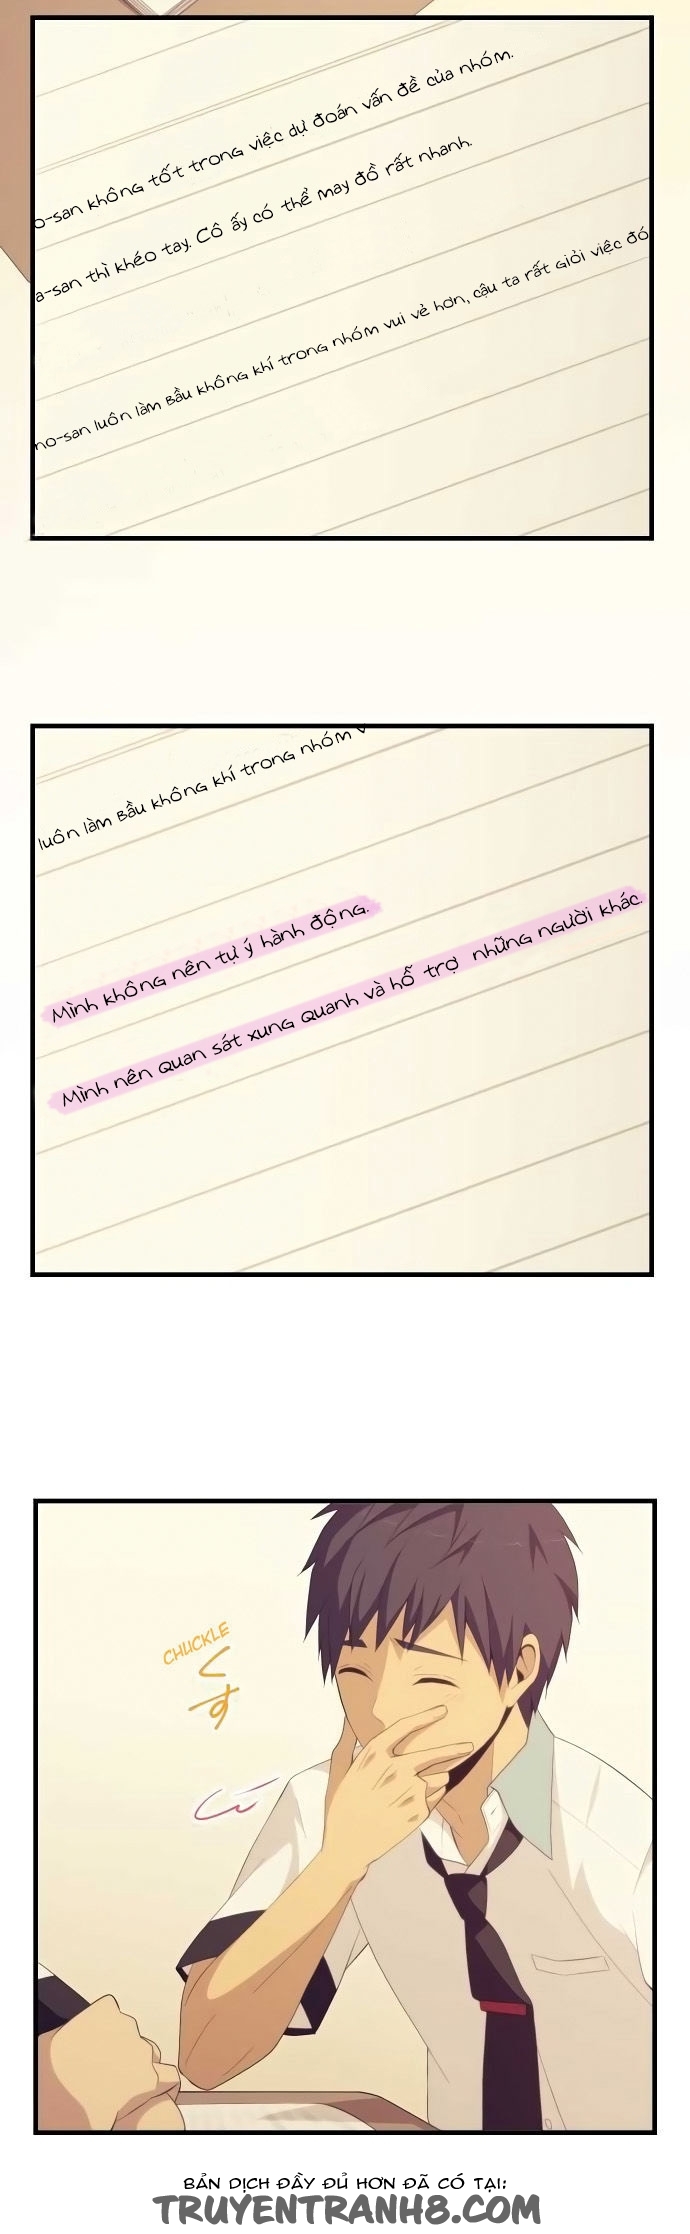 o-san không tốt trong việc dự đoán vấn đề của nhóm.
a-san thì khéo tay. Cô ấy có thể may đồ rất nhanh.
no-san luôn làm bầu không khí trong nhóm vui vẻ hơn, cậu ta rất giỏi việc đó
luôn làm bầu không khí trong nhóm v
Mình không nên tự ý hành động.
Mình nên quan sát xung quanh và hỗ trợ những người khác.
CHUCKLE
くす
BẢN DỊCH ĐẦY ĐỦ HƠN ĐÃ CÓ TẠI:
TRUYENTRANH8.COM